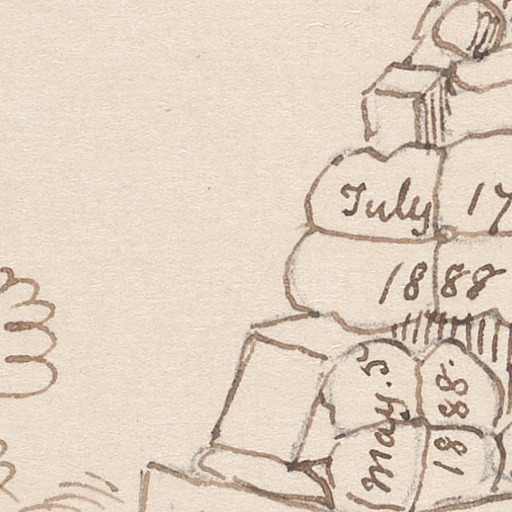 July 17
1888
May. 5
1888.